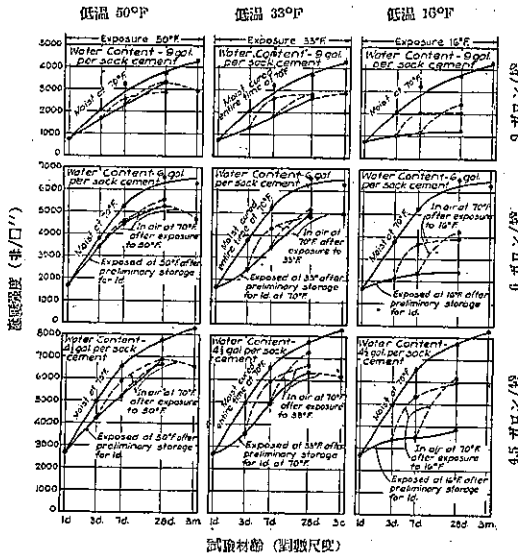 低温 50°F 低温 33°F 低温 16°F
Exposure 50°F. Exposure 33°F. Exposure 16°F.
5000
4000
3000
2000
1000
0
Water Content - 9 gal.
per sack cement
Moist at 70°F.
Water Content - 9 gal.
per sack cement
Moist cured
entire time at 70°F.
Water Content - 9 gal.
per sack cement
Moist at 70°F.
9 ガロン/袋
7000
6000
5000
4000
3000
2000
1000
0
Water Content 6 gal.
per sack cement
Moist at 70°F.
In air at 70°F.
after exposure
to 50°F.
Exposed at 50°F after
preliminary storage
for 1d.
Water Content 6 gal.
per sack cement
Moist cured
entire time at 70°F.
In air at
70°F. after
exposure
to 33°F.
Exposed at 33°F after
preliminary storage
for 1d. at 70°F.
Water Content - 6 gal.
per sack cement
Moist at 70°F.
In air at 70°F.
after exposure
to 16°F.
Exposed at 16°F after
preliminary storage
for 1d.
6 ガロン/袋
8000
7000
6000
5000
4000
3000
2000
1000
0
Water Content -
4½ gal per sack
cement
Moist at 70°F.
In air at 70°F.
after exposure
to 50°F.
Exposed at 50°F after
preliminary storage
for 1d.
Water Content -
4½ gal. per sack
cement
Moist cured
entire time at 70°F.
In air at 70°F.
after exposure
to 33°F.
Exposed at 33°F after
preliminary storage
for 1d at 70°F.
Water Content -
4½ gal. per sack
cement
Moist at 70°F.
In air at 70°F.
after exposure
to 16°F.
Exposed at 16°F after
preliminary storage
for 1d.
4.5 ガロン/袋
1d 3d. 7d. 28d. 3m. 1d 3d. 7d. 28d. 1d 3d. 7d. 28d 3m
試験材齢 (対数尺度)